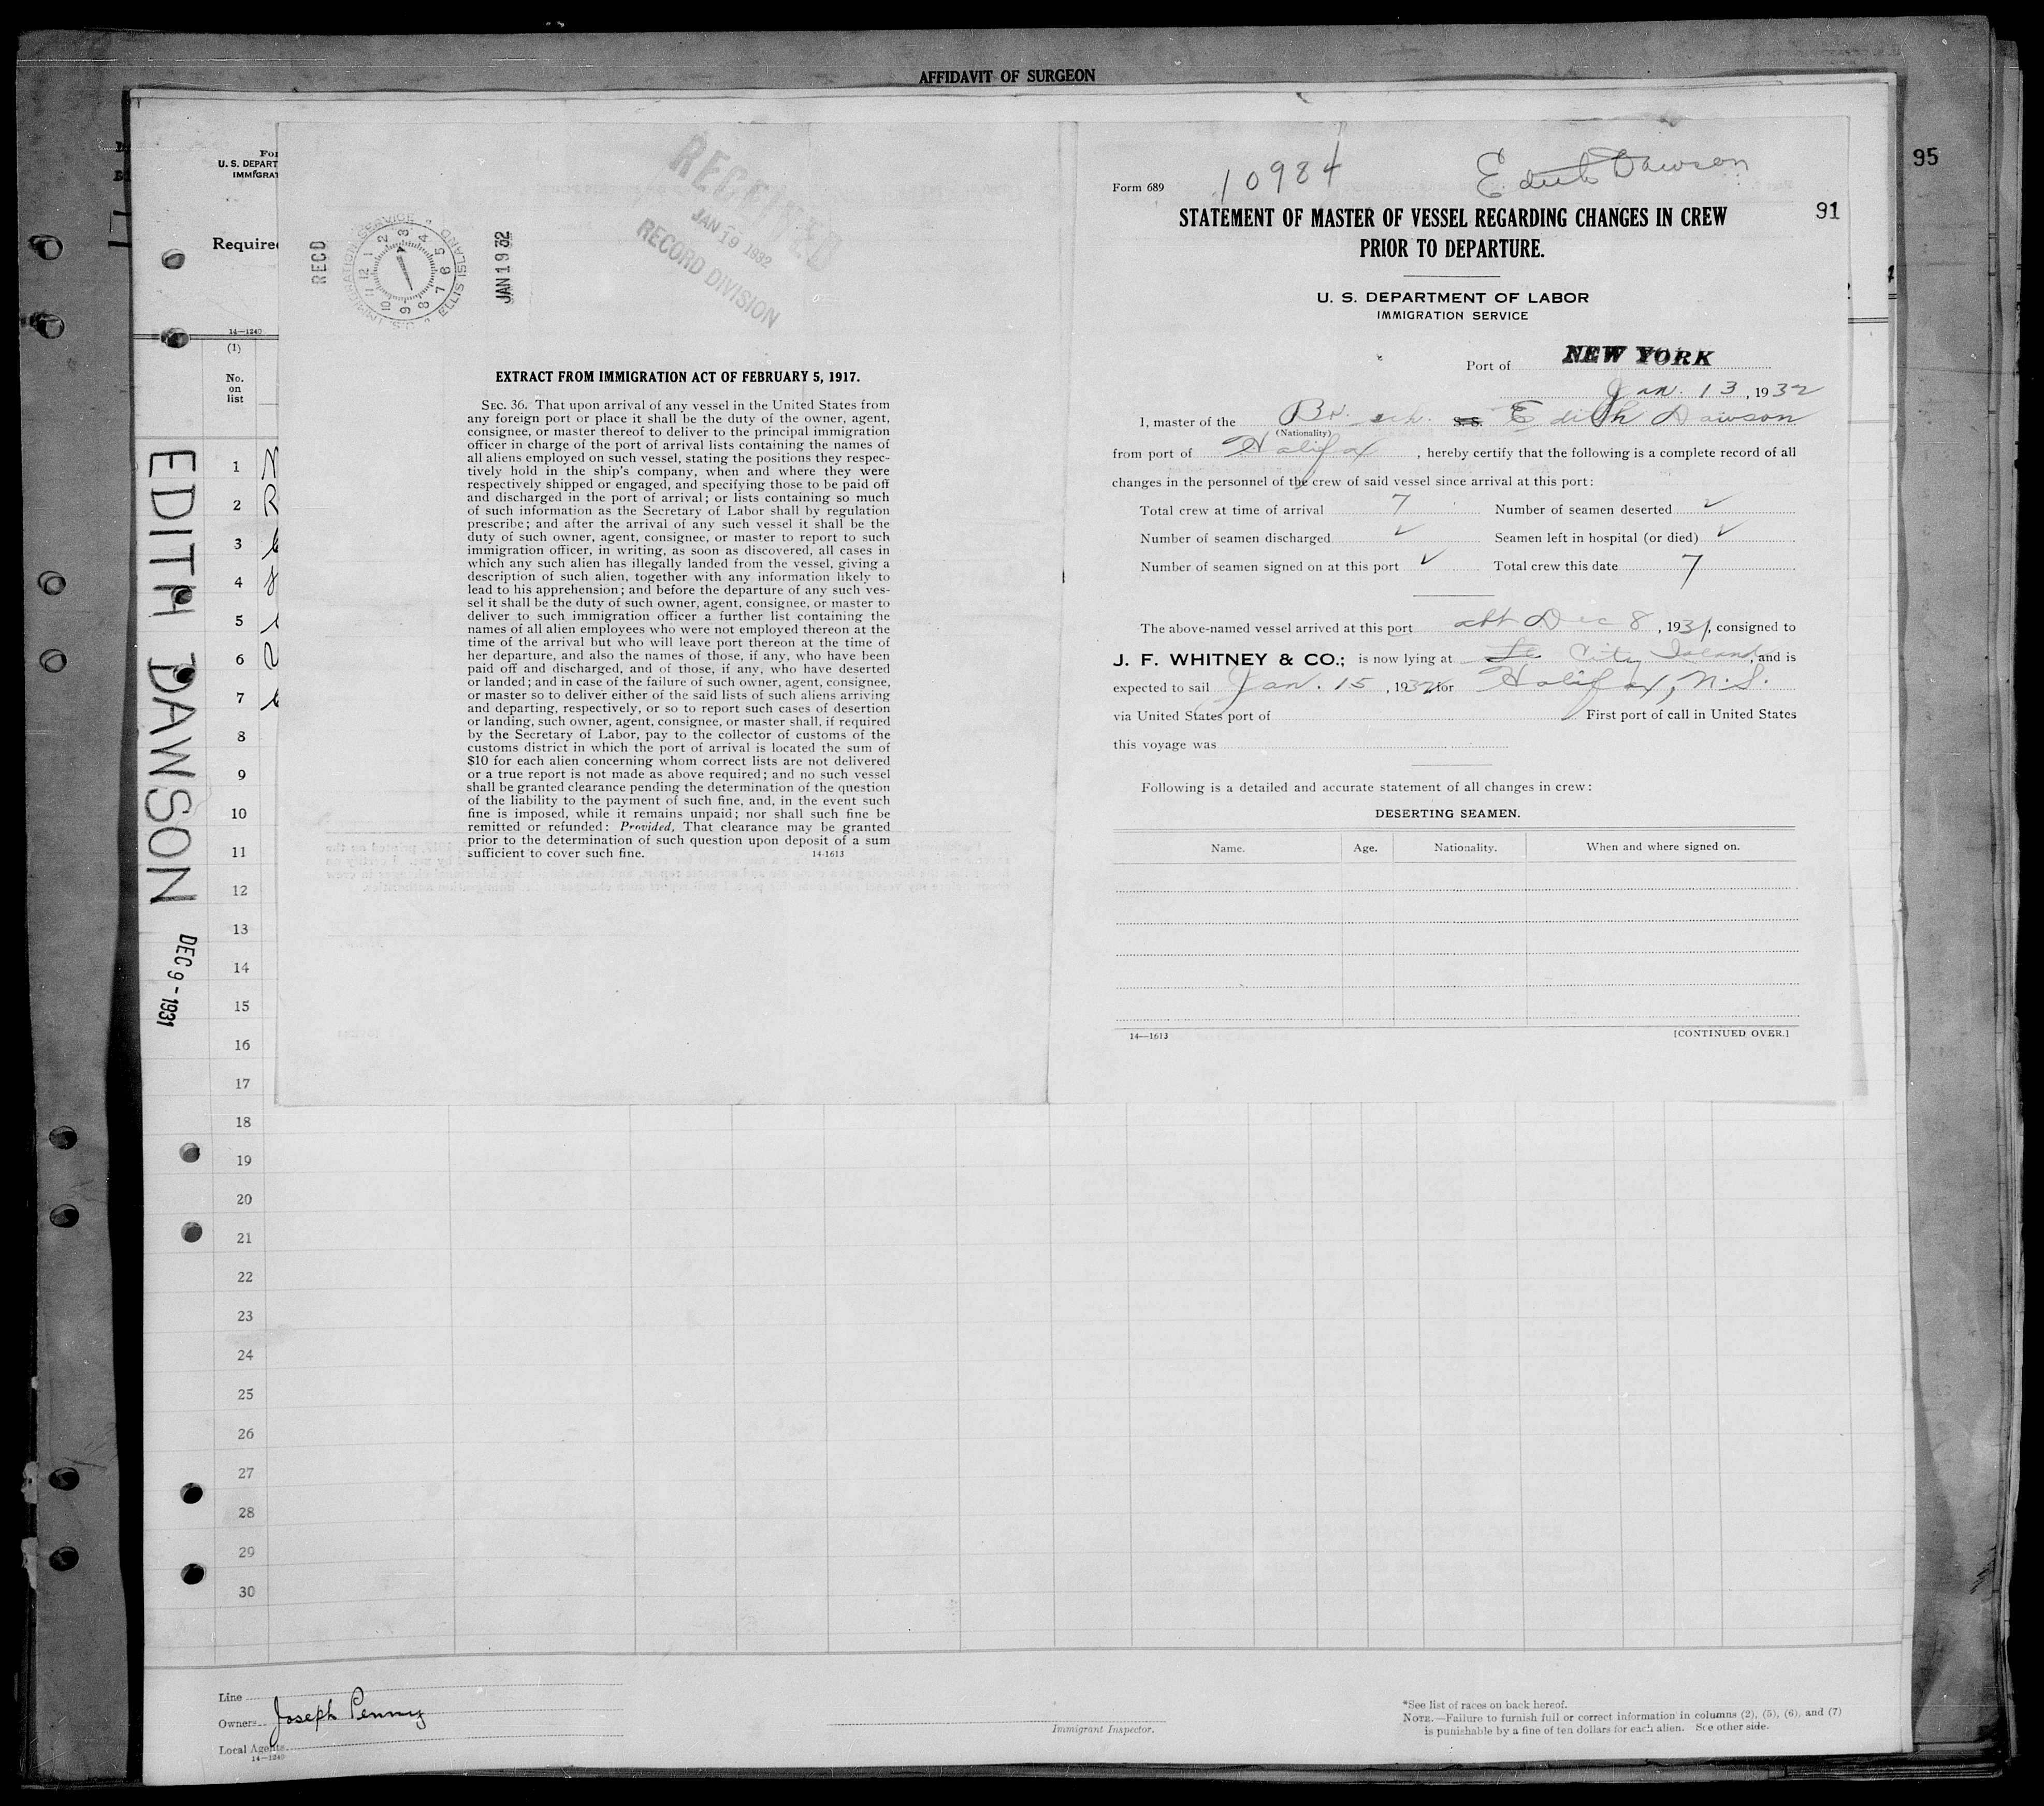 AFFIDAVIT OF SURGEON
95
For
U. S. DEPART
IMMIGRAT
Require
14—1240
(1)
No.
on
list
1
2
3
4
5
6
7
8
9
10
11
12
13
14
15
16
17
18
19
20
21
22
23
24
25
26
27
28
29
30
EDITH DAWSON
DEC 9 - 1931
RECD
U. S. IMMIGRATION SERVICE ELLIS ISLAND
1 2 3 4 5 6 7 8 9 10 11 12
JAN 19 32
RECEIVED
JAN 19 1932
RECORD DIVISION
EXTRACT FROM IMMIGRATION ACT OF FEBRUARY 5, 1917.
SEC. 36. That upon arrival of any vessel in the United States from
any foreign port or place it shall be the duty of the owner, agent,
consignee, or master thereof to deliver to the principal immigration
officer in charge of the port of arrival lists containing the names of
all aliens employed on such vessel, stating the positions they respec-
tively hold in the ship's company, when and where they were
respectively shipped or engaged, and specifying those to be paid off
and discharged in the port of arrival; or lists containing so much
of such information as the Secretary of Labor shall by regulation
prescribe; and after the arrival of any such vessel it shall be the
duty of such owner, agent, consignee, or master to report to such
immigration officer, in writing, as soon as discovered, all cases in
which any such alien has illegally landed from the vessel, giving a
description of such alien, together with any information likely to
lead to his apprehension; and before the departure of any such ves-
sel it shall be the duty of such owner, agent, consignee, or master to
deliver to such immigration officer a further list containing the
names of all alien employees who were not employed thereon at the
time of the arrival but who will leave port thereon at the time of
her departure, and also the names of those, if any, who have been
paid off and discharged, and of those, if any, who have deserted
or landed; and in case of the failure of such owner, agent, consignee,
or master so to deliver either of the said lists of such aliens arriving
and departing, respectively, or so to report such cases of desertion
or landing, such owner, agent, consignee, or master shall, if required
by the Secretary of Labor, pay to the collector of customs of the
customs district in which the port of arrival is located the sum of
$10 for each alien concerning whom correct lists are not delivered
or a true report is not made as above required; and no such vessel
shall be granted clearance pending the determination of the question
of the liability to the payment of such fine, and, in the event such
fine is imposed, while it remains unpaid; nor shall such fine be
remitted or refunded: Provided, That clearance may be granted
prior to the determination of such question upon deposit of a sum
sufficient to cover such fine. 14-1613
Form 689 10984 Edith Dawson
STATEMENT OF MASTER OF VESSEL REGARDING CHANGES IN CREW 91
PRIOR TO DEPARTURE.
U. S. DEPARTMENT OF LABOR
IMMIGRATION SERVICE
Port of NEW YORK
Jan. 13, 1932
I, master of the Br. sch. s.s. Edith Dawson
(Nationality)
from port of Halifax, hereby certify that the following is a complete record of all
changes in the personnel of the crew of said vessel since arrival at this port:
Total crew at time of arrival 7 Number of seamen deserted ✓
Number of seamen discharged ✓ Seamen left in hospital (or died) ✓
Number of seamen signed on at this port ✓ Total crew this date 7
The above-named vessel arrived at this port Dec 8, 1931, consigned to
J. F. WHITNEY & CO.; is now lying at City Island, and is
expected to sail Jan. 15, 1932 for Halifax, N.S.
via United States port of First port of call in United States
this voyage was
Following is a detailed and accurate statement of all changes in crew:
DESERTING SEAMEN.
Name. Age. Nationality. When and where signed on.
14—1613 [CONTINUED OVER.]
Line
Owners Joseph Penny
Local Agents
14—1240
Immigrant Inspector.
*See list of races on back hereof.
NOTE.—Failure to furnish full or correct information in columns (2), (5), (6), and (7)
is punishable by a fine of ten dollars for each alien. See other side.